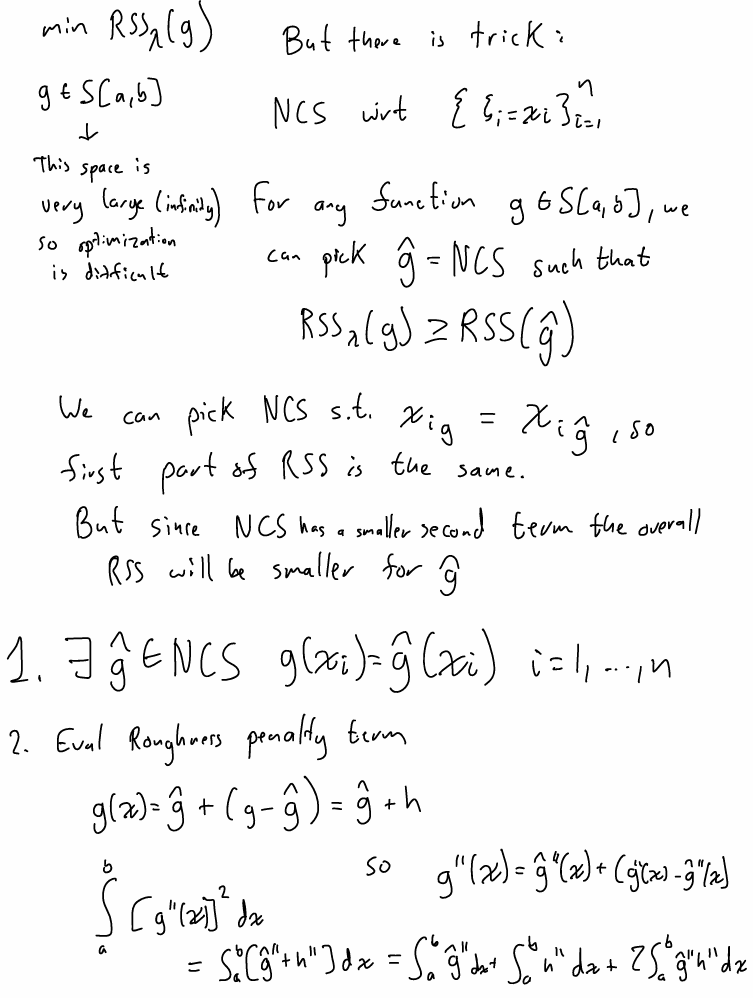 min RSS_λ(g)
g ∈ S[a,b]
↓
This space is
very large (infinity)
so optimization
is difficult
But there is trick:
NCS wrt {ξ_i = x_i}_{i=1}^n
For any function g ∈ S[a,b], we
can pick ĝ = NCS such that
RSS_λ(g) ≥ RSS(ĝ)
We can pick NCS s.t. x_{i g} = x_{i ĝ}, so
first part of RSS is the same.
But since NCS has a smaller second term the overall
RSS will be smaller for ĝ
1. ∃ ĝ ∈ NCS g(x_i) = ĝ(x_i) i=1, ..., n
2. Eval Roughness penalty term
g(x) = ĝ + (g - ĝ) = ĝ + h
so g''(x) = ĝ''(x) + (g''(x) - ĝ''(x)
∫_a^b [g''(x)]^2 dx
= ∫_a^b [ĝ'' + h''] dx = ∫_a^b ĝ'' dx + ∫_a^b h'' dx + 2∫_a^b ĝ'' h'' dx